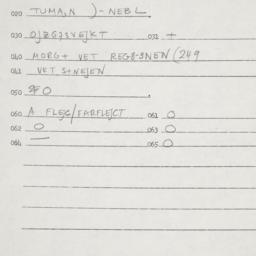 020 TUMA,N )-NEBL.
030 OJZGJSVEJKT 031 +
040 MORG+ VET REGS-SNEN(249
041 VET S+NEJEN
050 $FO
060 A FLEJC/FARFLEJCT 061 O
062 O 063 O
064 — 065 O